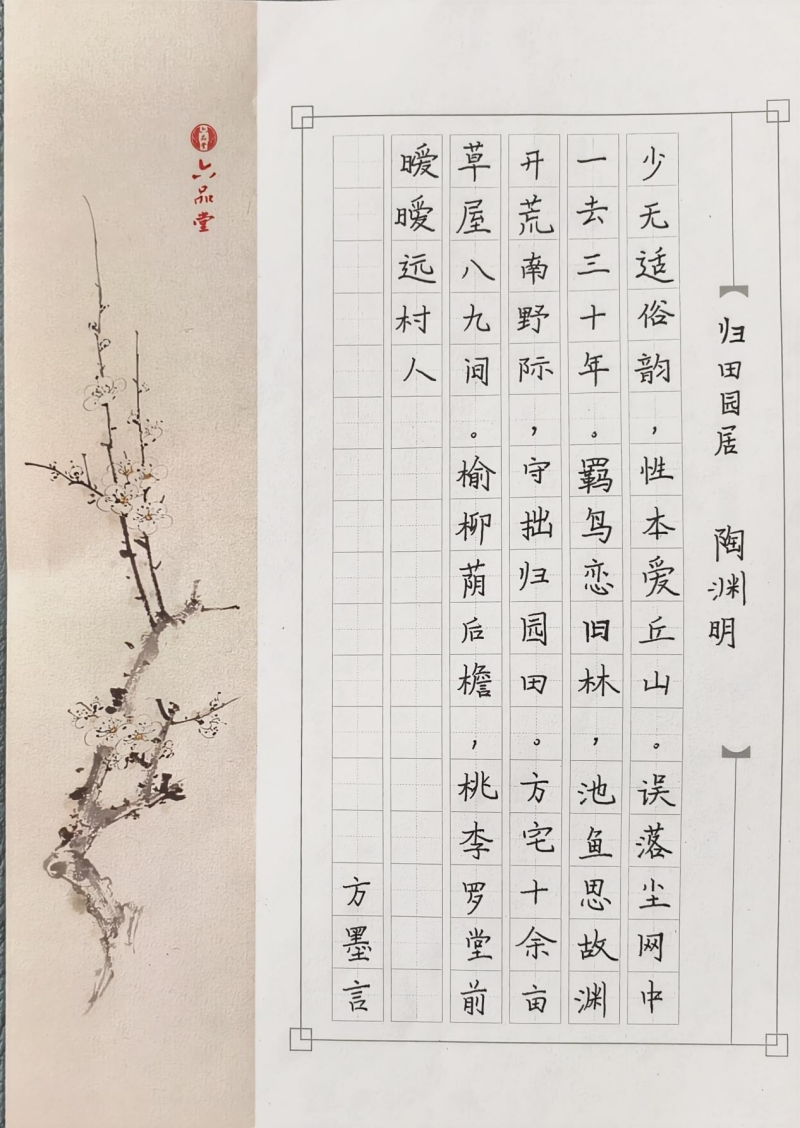 归田园居 陶渊明
少无适俗韵，性本爱丘山。误落尘网中
一去三十年。羁鸟恋旧林，池鱼思故渊
开荒南野际，守拙归园田。方宅十余亩
草屋八九间。榆柳荫后檐，桃李罗堂前
暧暧远村人
方墨言
六品堂
六品堂